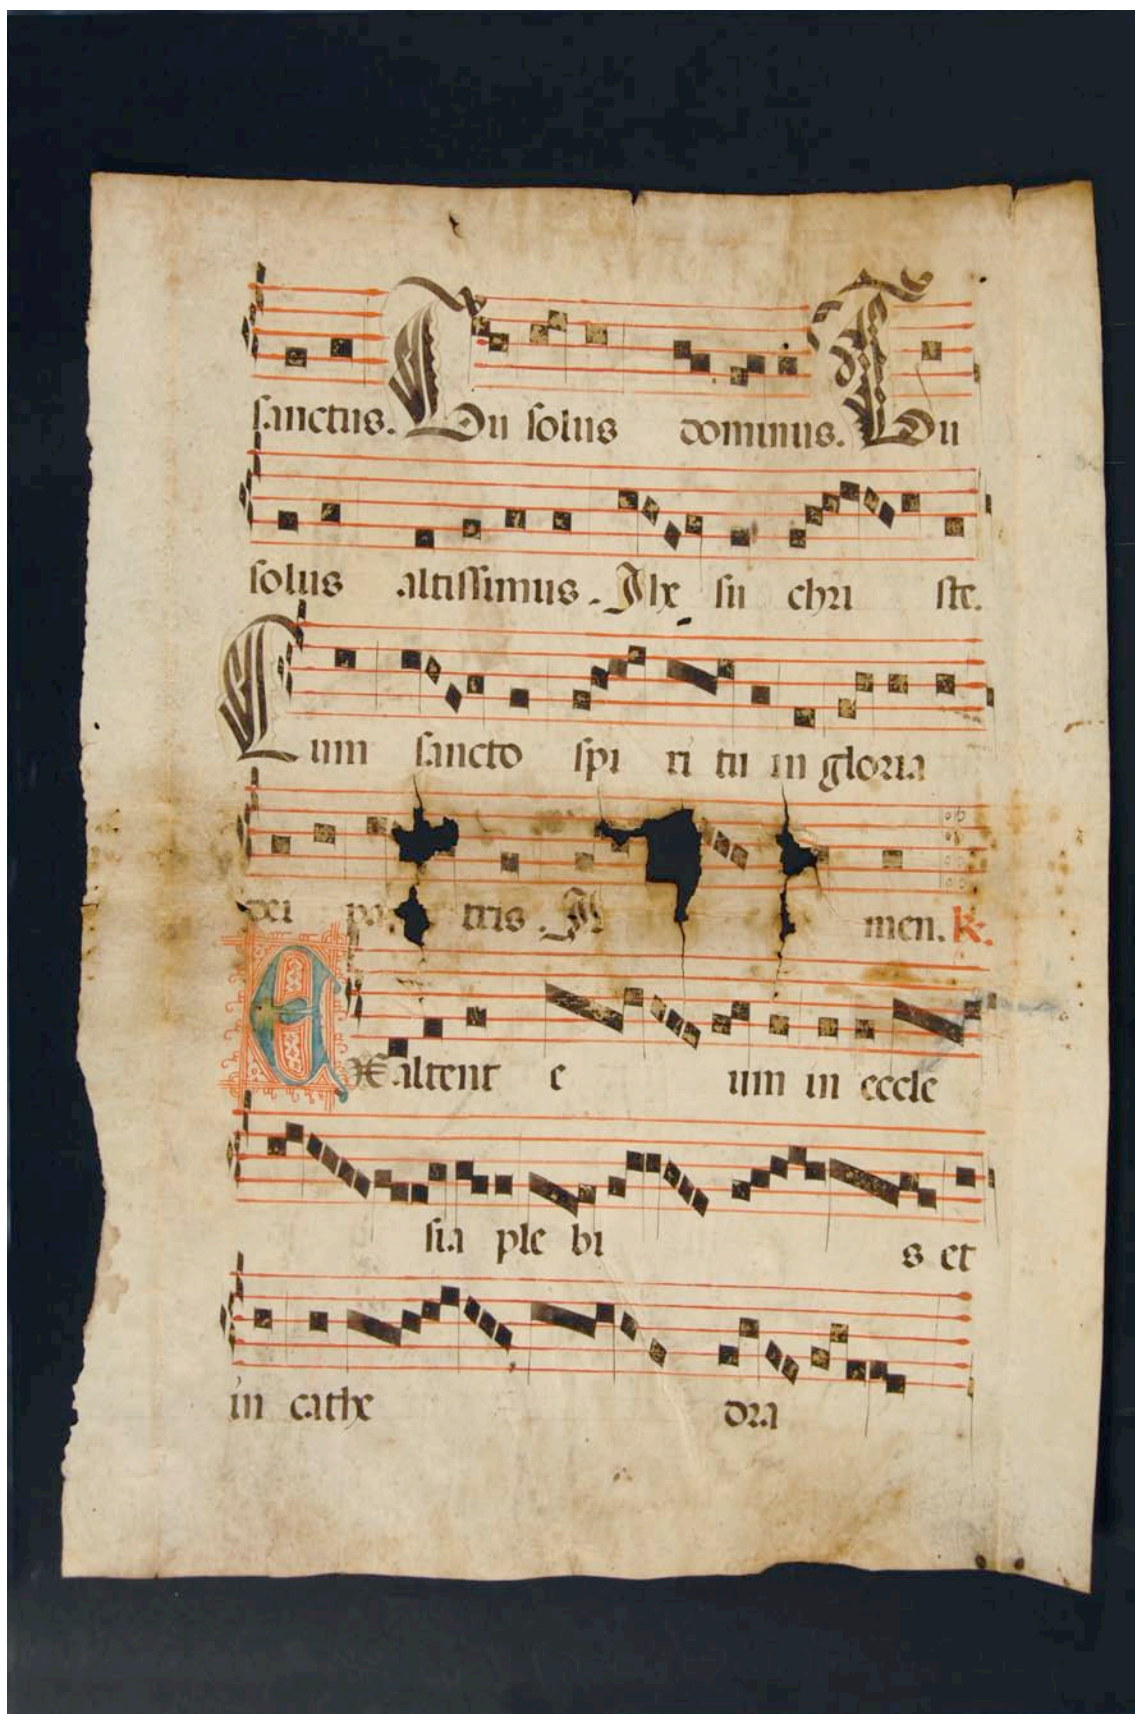 sanctus. Tu solus dominus. Tu
solus altissimus. Ihe su chri ste.
Cum sancto spi ri tu in gloria
dei pa tris. A men. k.
Exaltent e um in eccle
sia ple bi s et
in cathe dra